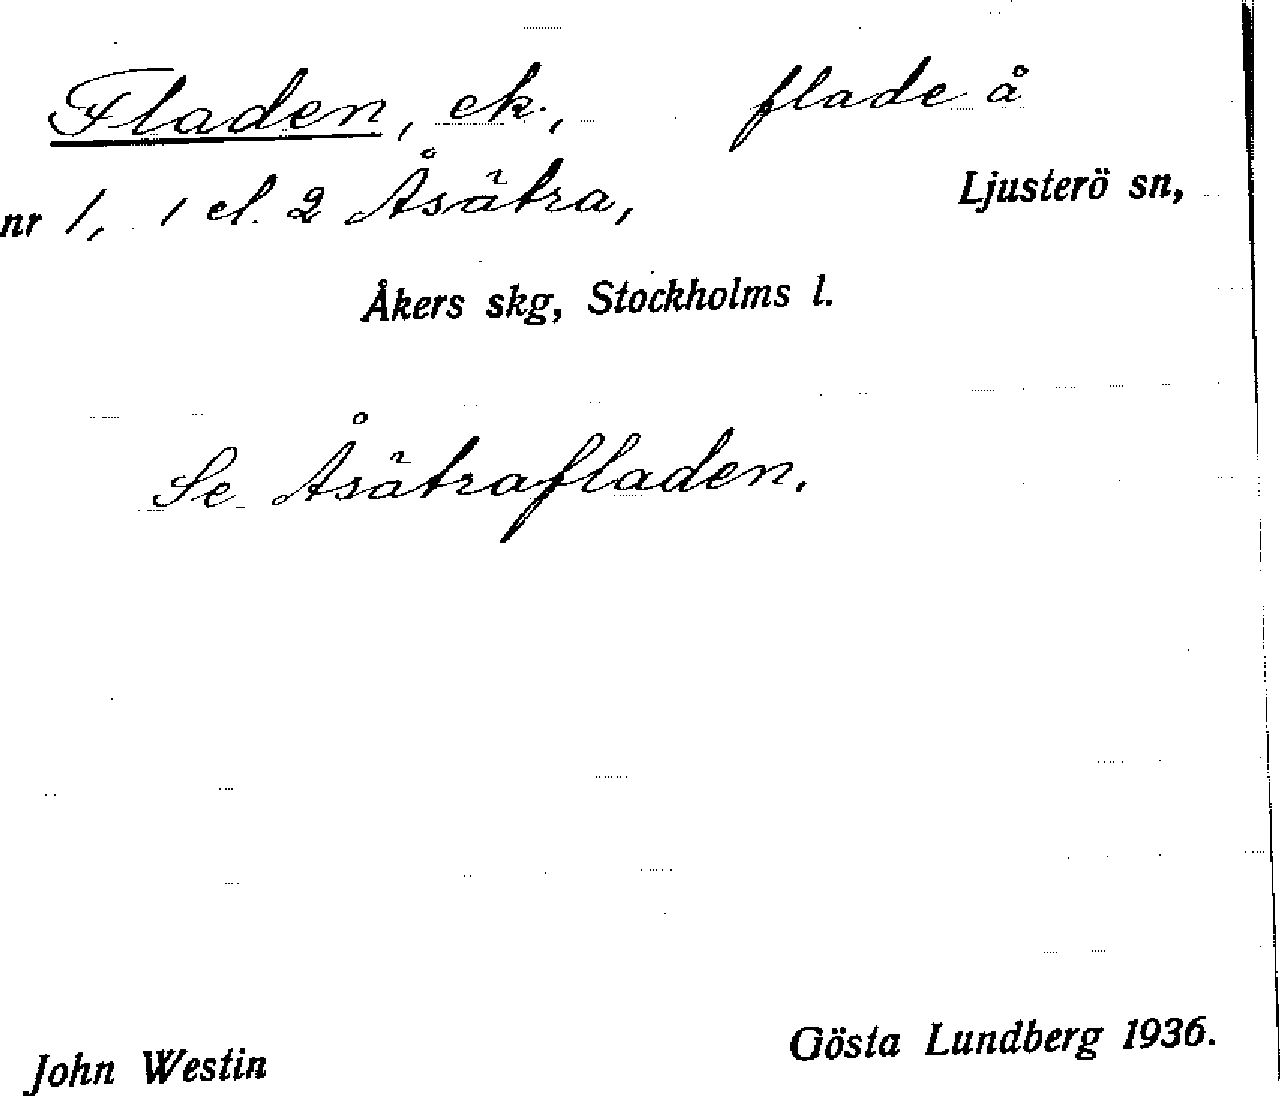 Fladen, ek., flade å
nr 1, 1 el. 2 Åsätra, Ljusterö sn,
Åkers skg, Stockholms l.
Se Åsätrafladen.
John Westin Gösta Lundberg 1936.